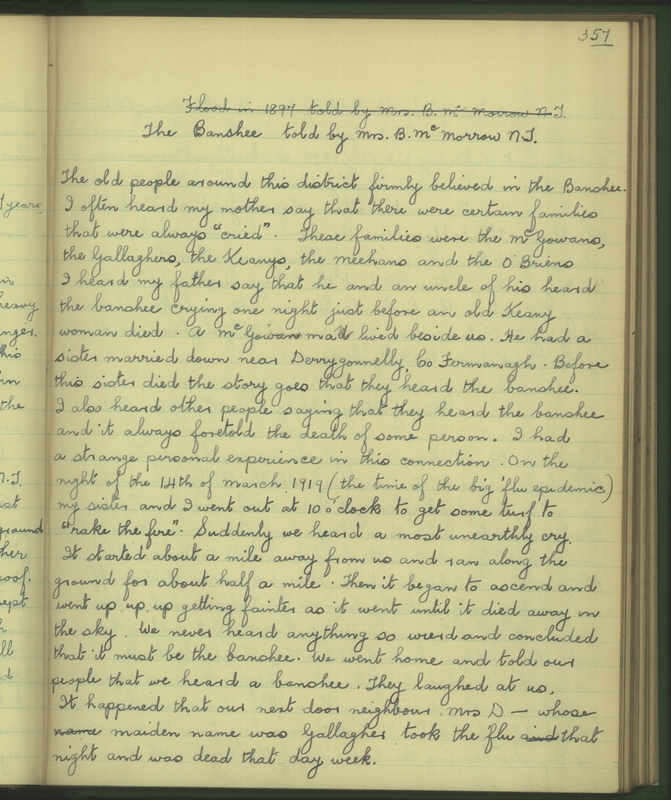 357
Flood in 1897 told by Mrs. B. Mc Morrow N.T.
The Banshee told by Mrs. B. Mc Morrow N.T.
The old people around this district firmly believed in the Banshee.
I often heard my mother say that there were certain families
that were always "cried". These families were the Mc Gowans,
the Gallaghers, the Keanys, the Meehans and the O'Briens
I heard my father say that he and an uncle of his heard
the banshee crying one night just before an old Keany
woman died. A Mc Gowan man lived beside us. He had a
sister married down near Derrygonnelly, Co Fermanagh. Before
this sister died the story goes that they heard the banshee.
I also heard other people saying that they heard the banshee
and it always foretold the death of some person. I had
a strange personal experience in this connection. On the
night of the 14th of March 1919 (the time of the big 'flu epidemic)
my sister and I went out at 10 o'clock to get some turf to
"rake the fire". Suddenly we heard a most unearthly cry.
It started about a mile away from us and ran along the
ground for about half a mile. Then it began to ascend and
went up, up, up getting fainter as it went until it died away in
the sky. We never heard anything so wierd and concluded
that it must be the banshee. We went home and told our
people that we heard a banshee. They laughed at us.
It happened that our next door neighbour, Mrs D — whose
name maiden name was Gallagher took the 'flu and that
night and was dead that day week.
years
heavy
anger.
his
the
N.T.
ground
her
roof.